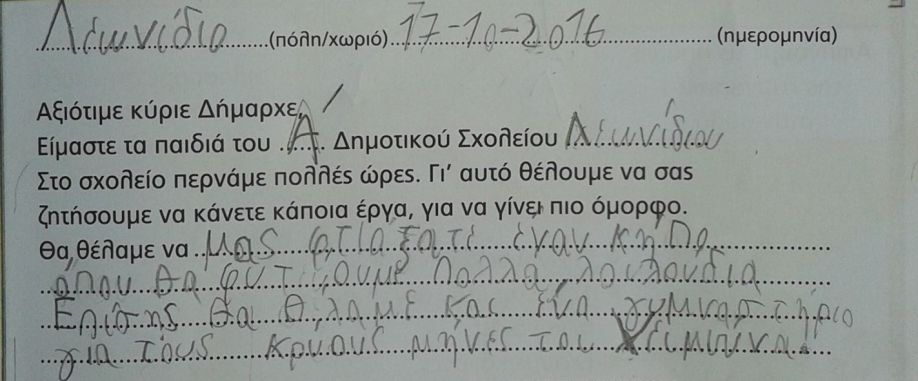 Λεωνίδιο (πόλη/χωριό) 17-10-2016 (ημερομηνία)
Αξιότιμε κύριε Δήμαρχε,
Είμαστε τα παιδιά του Α Δημοτικού Σχολείου Λεωνιδίου
Στο σχολείο περνάμε πολλές ώρες. Γι' αυτό θέλουμε να σας
ζητήσουμε να κάνετε κάποια έργα, για να γίνει πιο όμορφο.
Θα θέλαμε να μας φτιάξατε έναν κήπο
οπου θα φυτέψουμε πολλά λουλούδια
Επίσης θα θέλαμε και ένα γυμναστήριο
για τους κρυους μήνες του χειμώνα!